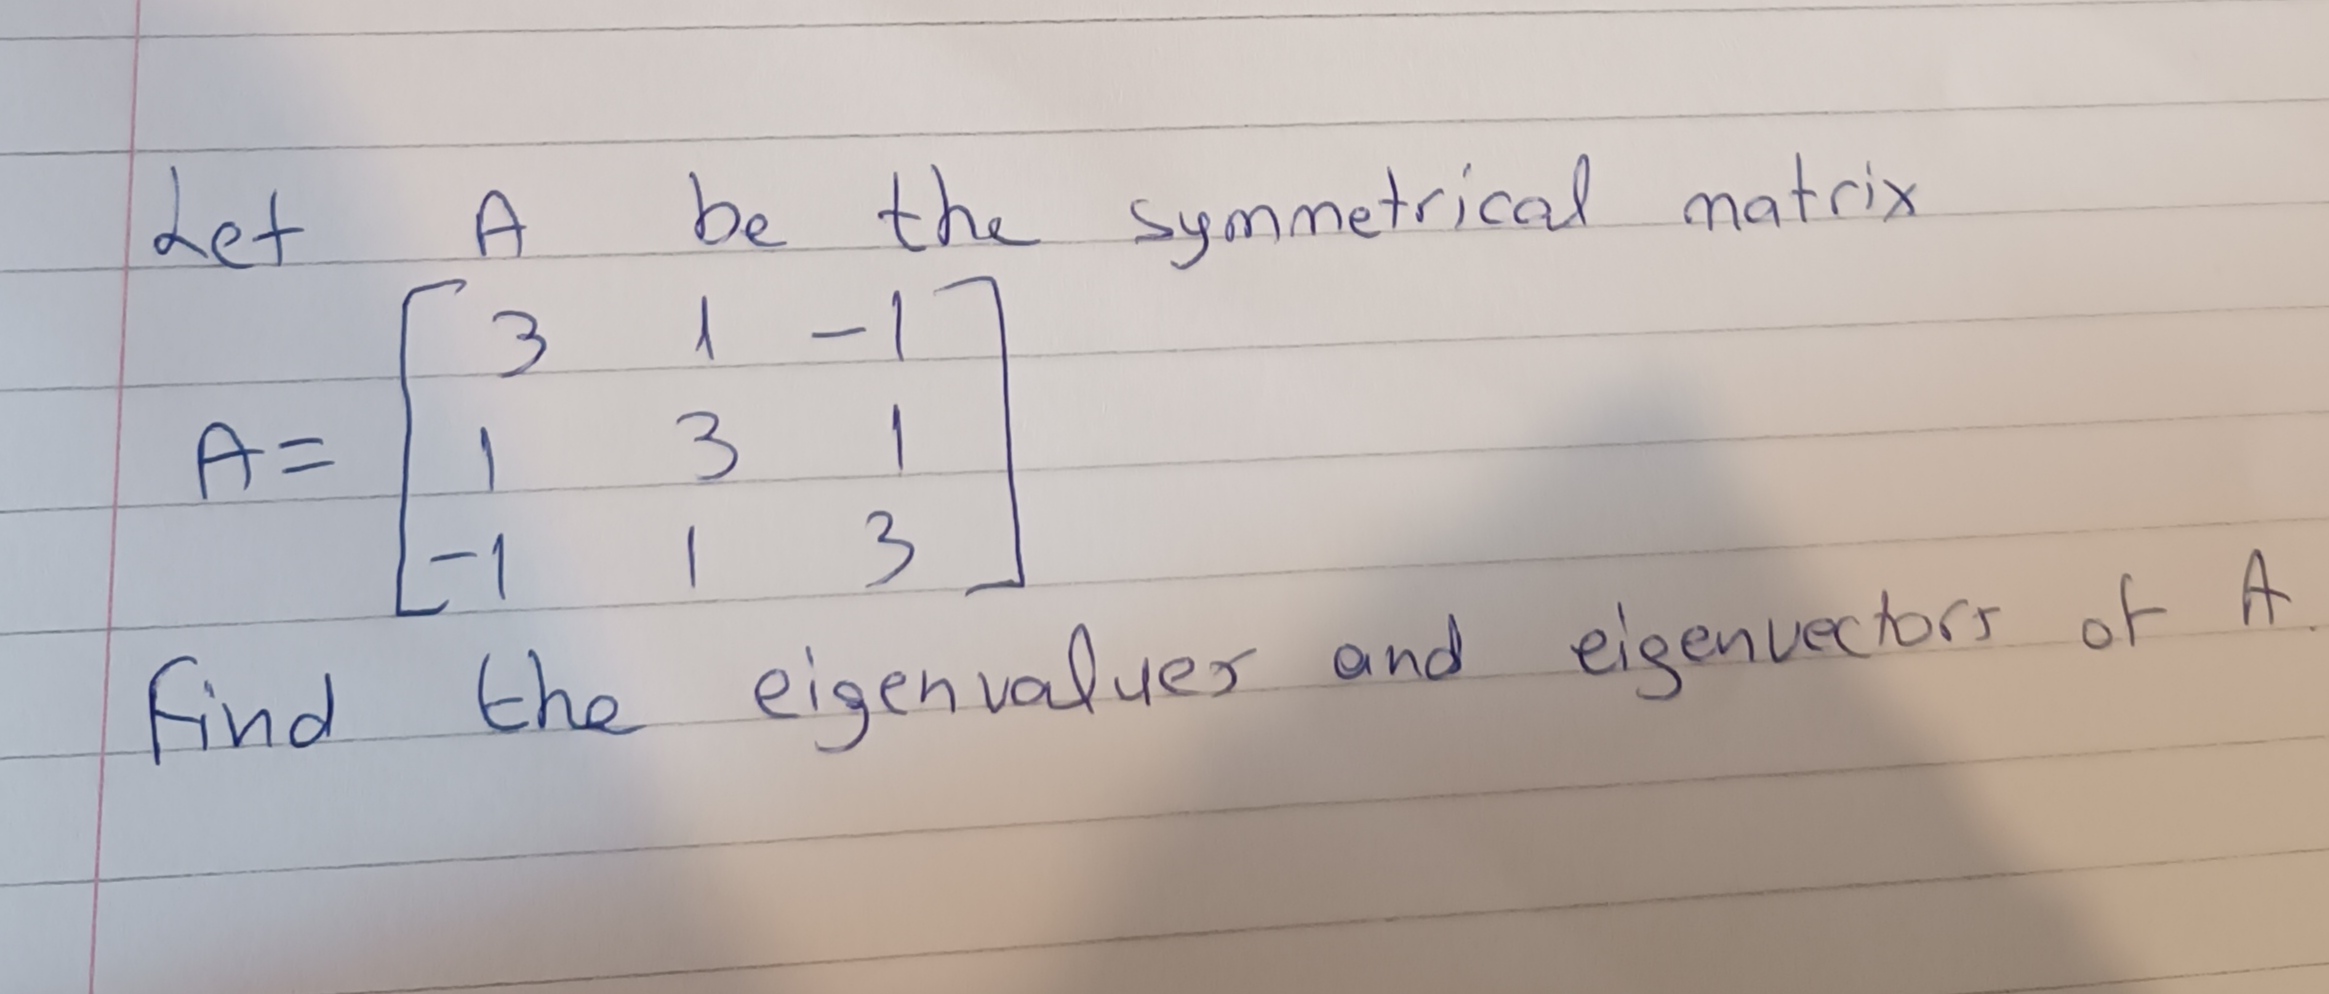 Let A be the symmetrical matrix
A = [ 3 1 -1
1 3 1
-1 1 3 ]
Find the eigenvalues and eigenvectors of A.